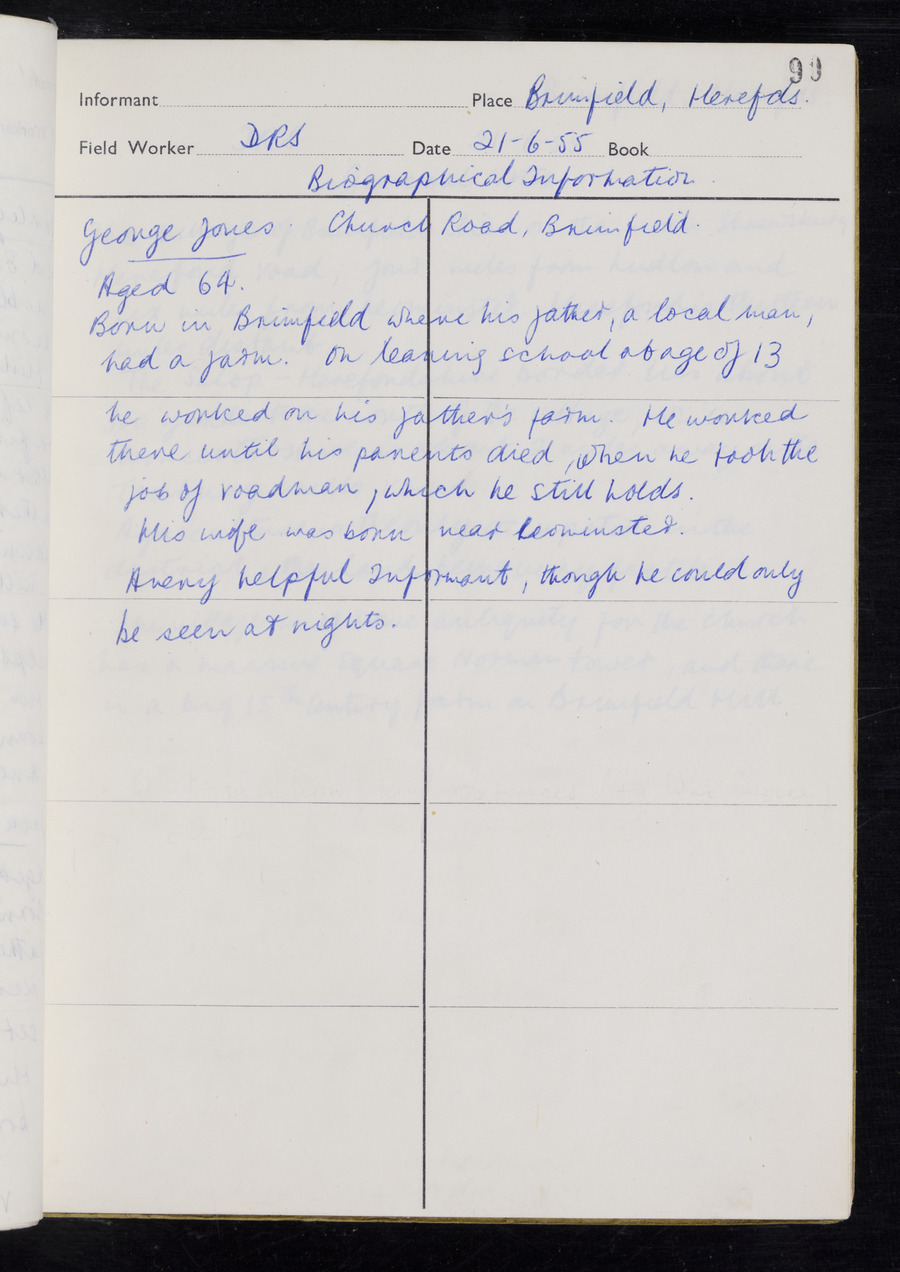 99
Informant Place Brimfield, Herefds.
Field Worker DRS Date 21-6-55 Book
Biographical Information
George Jones Church Road, Brimfield.
Aged 64.
Born in Brimfield where his father, a local man,
had a farm. On leaving school at age of 13
he worked on his father's farm. He worked
there until his parents died, when he took the
job of roadman, which he still holds.
His wife was born near Leominster.
A very helpful Informant, though he could only
be seen at nights.